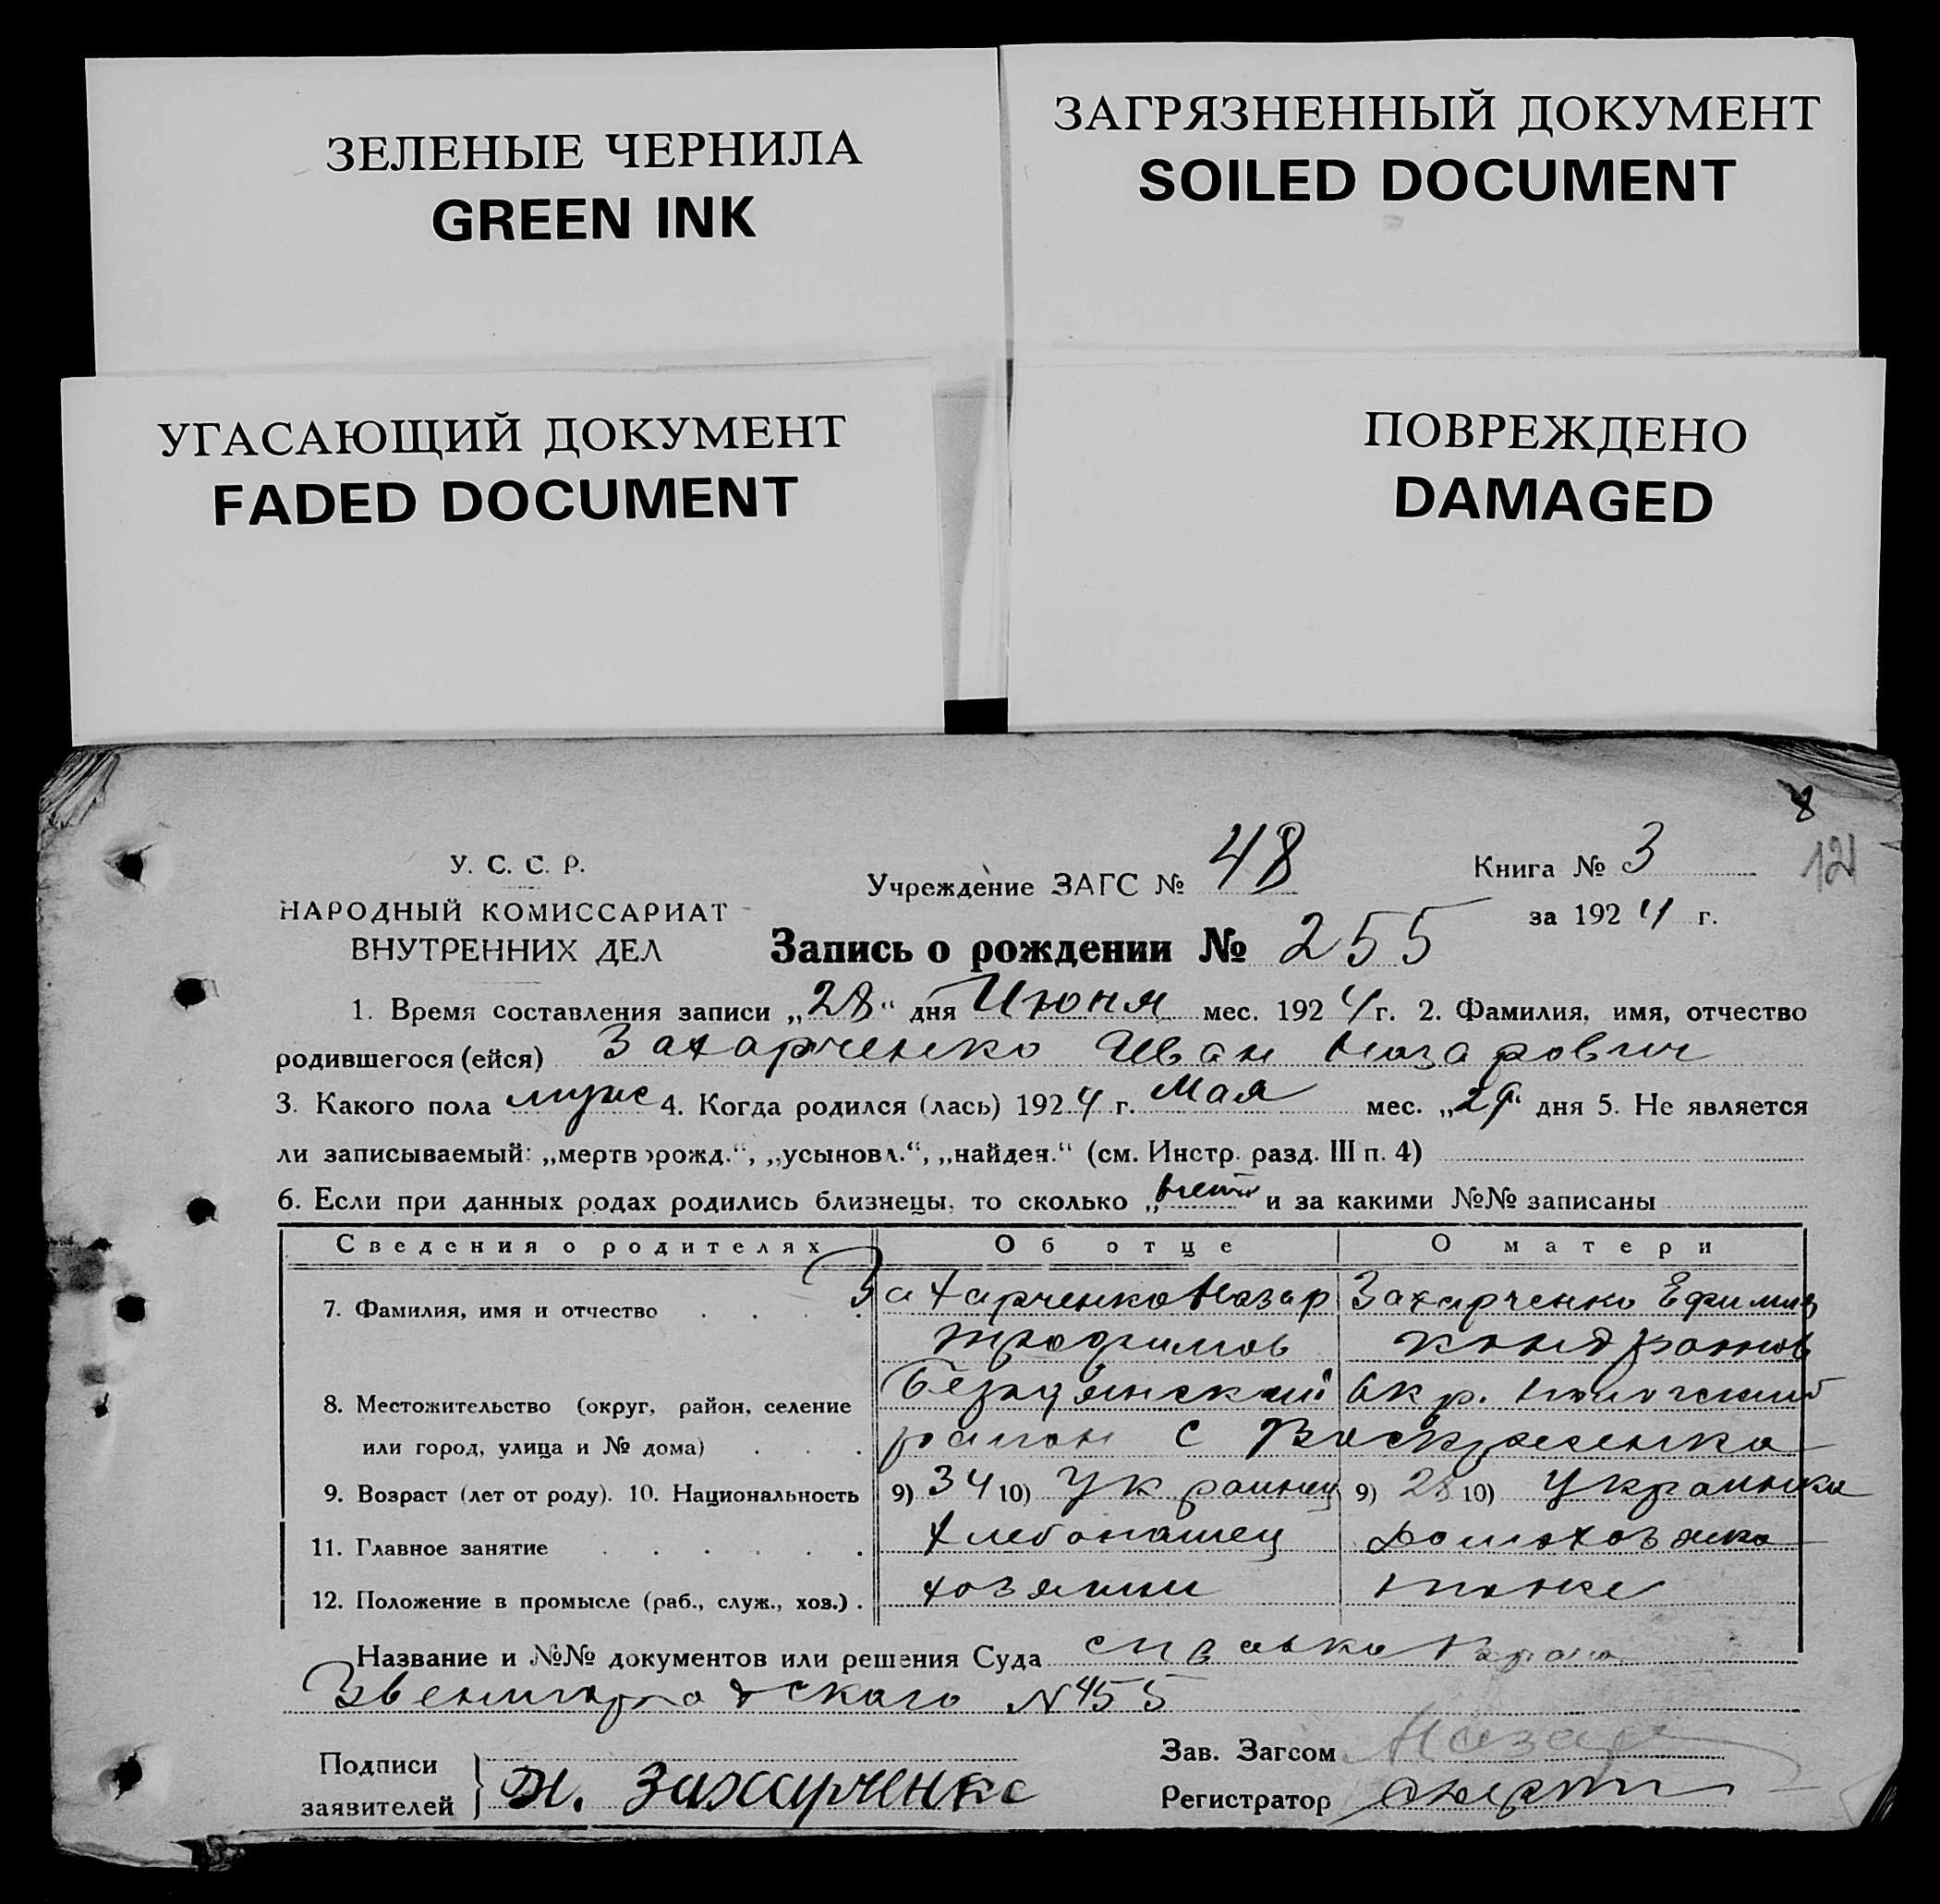 ЗЕЛЕНЫЕ ЧЕРНИЛА
GREEN INK
ЗАГРЯЗНЕННЫЙ ДОКУМЕНТ
SOILED DOCUMENT
УГАСАЮЩИЙ ДОКУМЕНТ
FADED DOCUMENT
ПОВРЕЖДЕНО
DAMAGED
8
У. С. С. Р.
Учреждение ЗАГС № 48
Книга № 3
121
НАРОДНЫЙ КОМИССАРИАТ
ВНУТРЕННИХ ДЕЛ
за 1924 г.
Запись о рождении № 255
1. Время составления записи „28“ дня Июня мес. 1924 г. 2. Фамилия, имя, отчество
родившегося (ейся) Захарченко Иван Назарович
3. Какого пола муж 4. Когда родился (лась) 1924 г. Мая мес. „29“ дня 5. Не является
ли записываемый: „мертворожд.“, „усыновл.“, „найден.“ (см. Инстр. разд. III п. 4)
6. Если при данных родах родились близнецы, то сколько „ и за какими №№ записаны
Сведения о родителях Об отце О матери
7. Фамилия, имя и отчество . . . . Захарченко Назар Захарченко Ефимия
Трофимов Кондратов
8. Местожительство (округ, район, селение Бердянский Окр. Пологский
или город, улица и № дома) . . . район с Воскресенка
9. Возраст (лет от роду). 10. Национальность 9) 34 10) Украинец 9) 28 10) Украинка
11. Главное занятие . . . . . . Хлебопашец Домохозяйка
12. Положение в промысле (раб., служ., хоз.) . хозяин
Название и №№ документов или решения Суда справка
№ 455
Подписи
заявителей } Н. Захарченко
Зав. Загсом
Регистратор